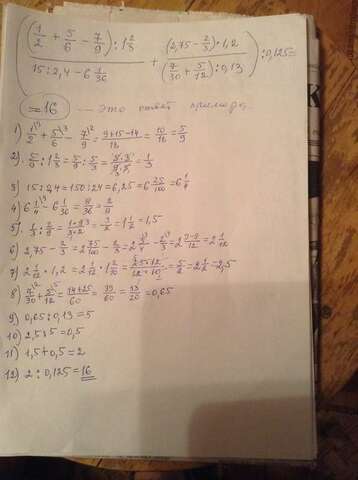 ( (1/2 + 5/6 − 7/9) : 1 2/3 / 15 : 2,4 − 6 1/36 + (2,75 − 2/3) · 1,2 / (7/30 + 5/12) : 0,13 ) : 0,125 =
= 16 — это ответ примера.
1) 1/2 + 5/6 − 7/9 = 9+15−14/18 = 10/18 = 5/9
2) 5/9 : 1 2/3 = 5/9 · 3/5 = 5·3/9·5 = 1/3
3) 15 : 2,4 = 150 : 24 = 6,25 = 6 25/100 = 6 1/4
4) 6 1/4 − 6 1/36 = 8/36 = 2/9
5) 1/3 : 2/9 = 1·9 3/3·2 = 3/2 = 1 1/2 = 1,5
6) 2,75 − 2/3 = 2 75/100 − 2/3 = 2 3/4 − 2/3 = 2 9−8/12 = 2 1/12
7) 2 1/12 · 1,2 = 2 1/12 · 1 2/10 = 25·12/12·10 = 5/2 = 2 1/2 = 2,5
8) 7/30 + 5/12 = 14+25/60 = 39/60 = 13/20 = 0,65
9) 0,65 : 0,13 = 5
10) 2,5 : 5 = 0,5
11) 1,5 + 0,5 = 2
12) 2 : 0,125 = 16